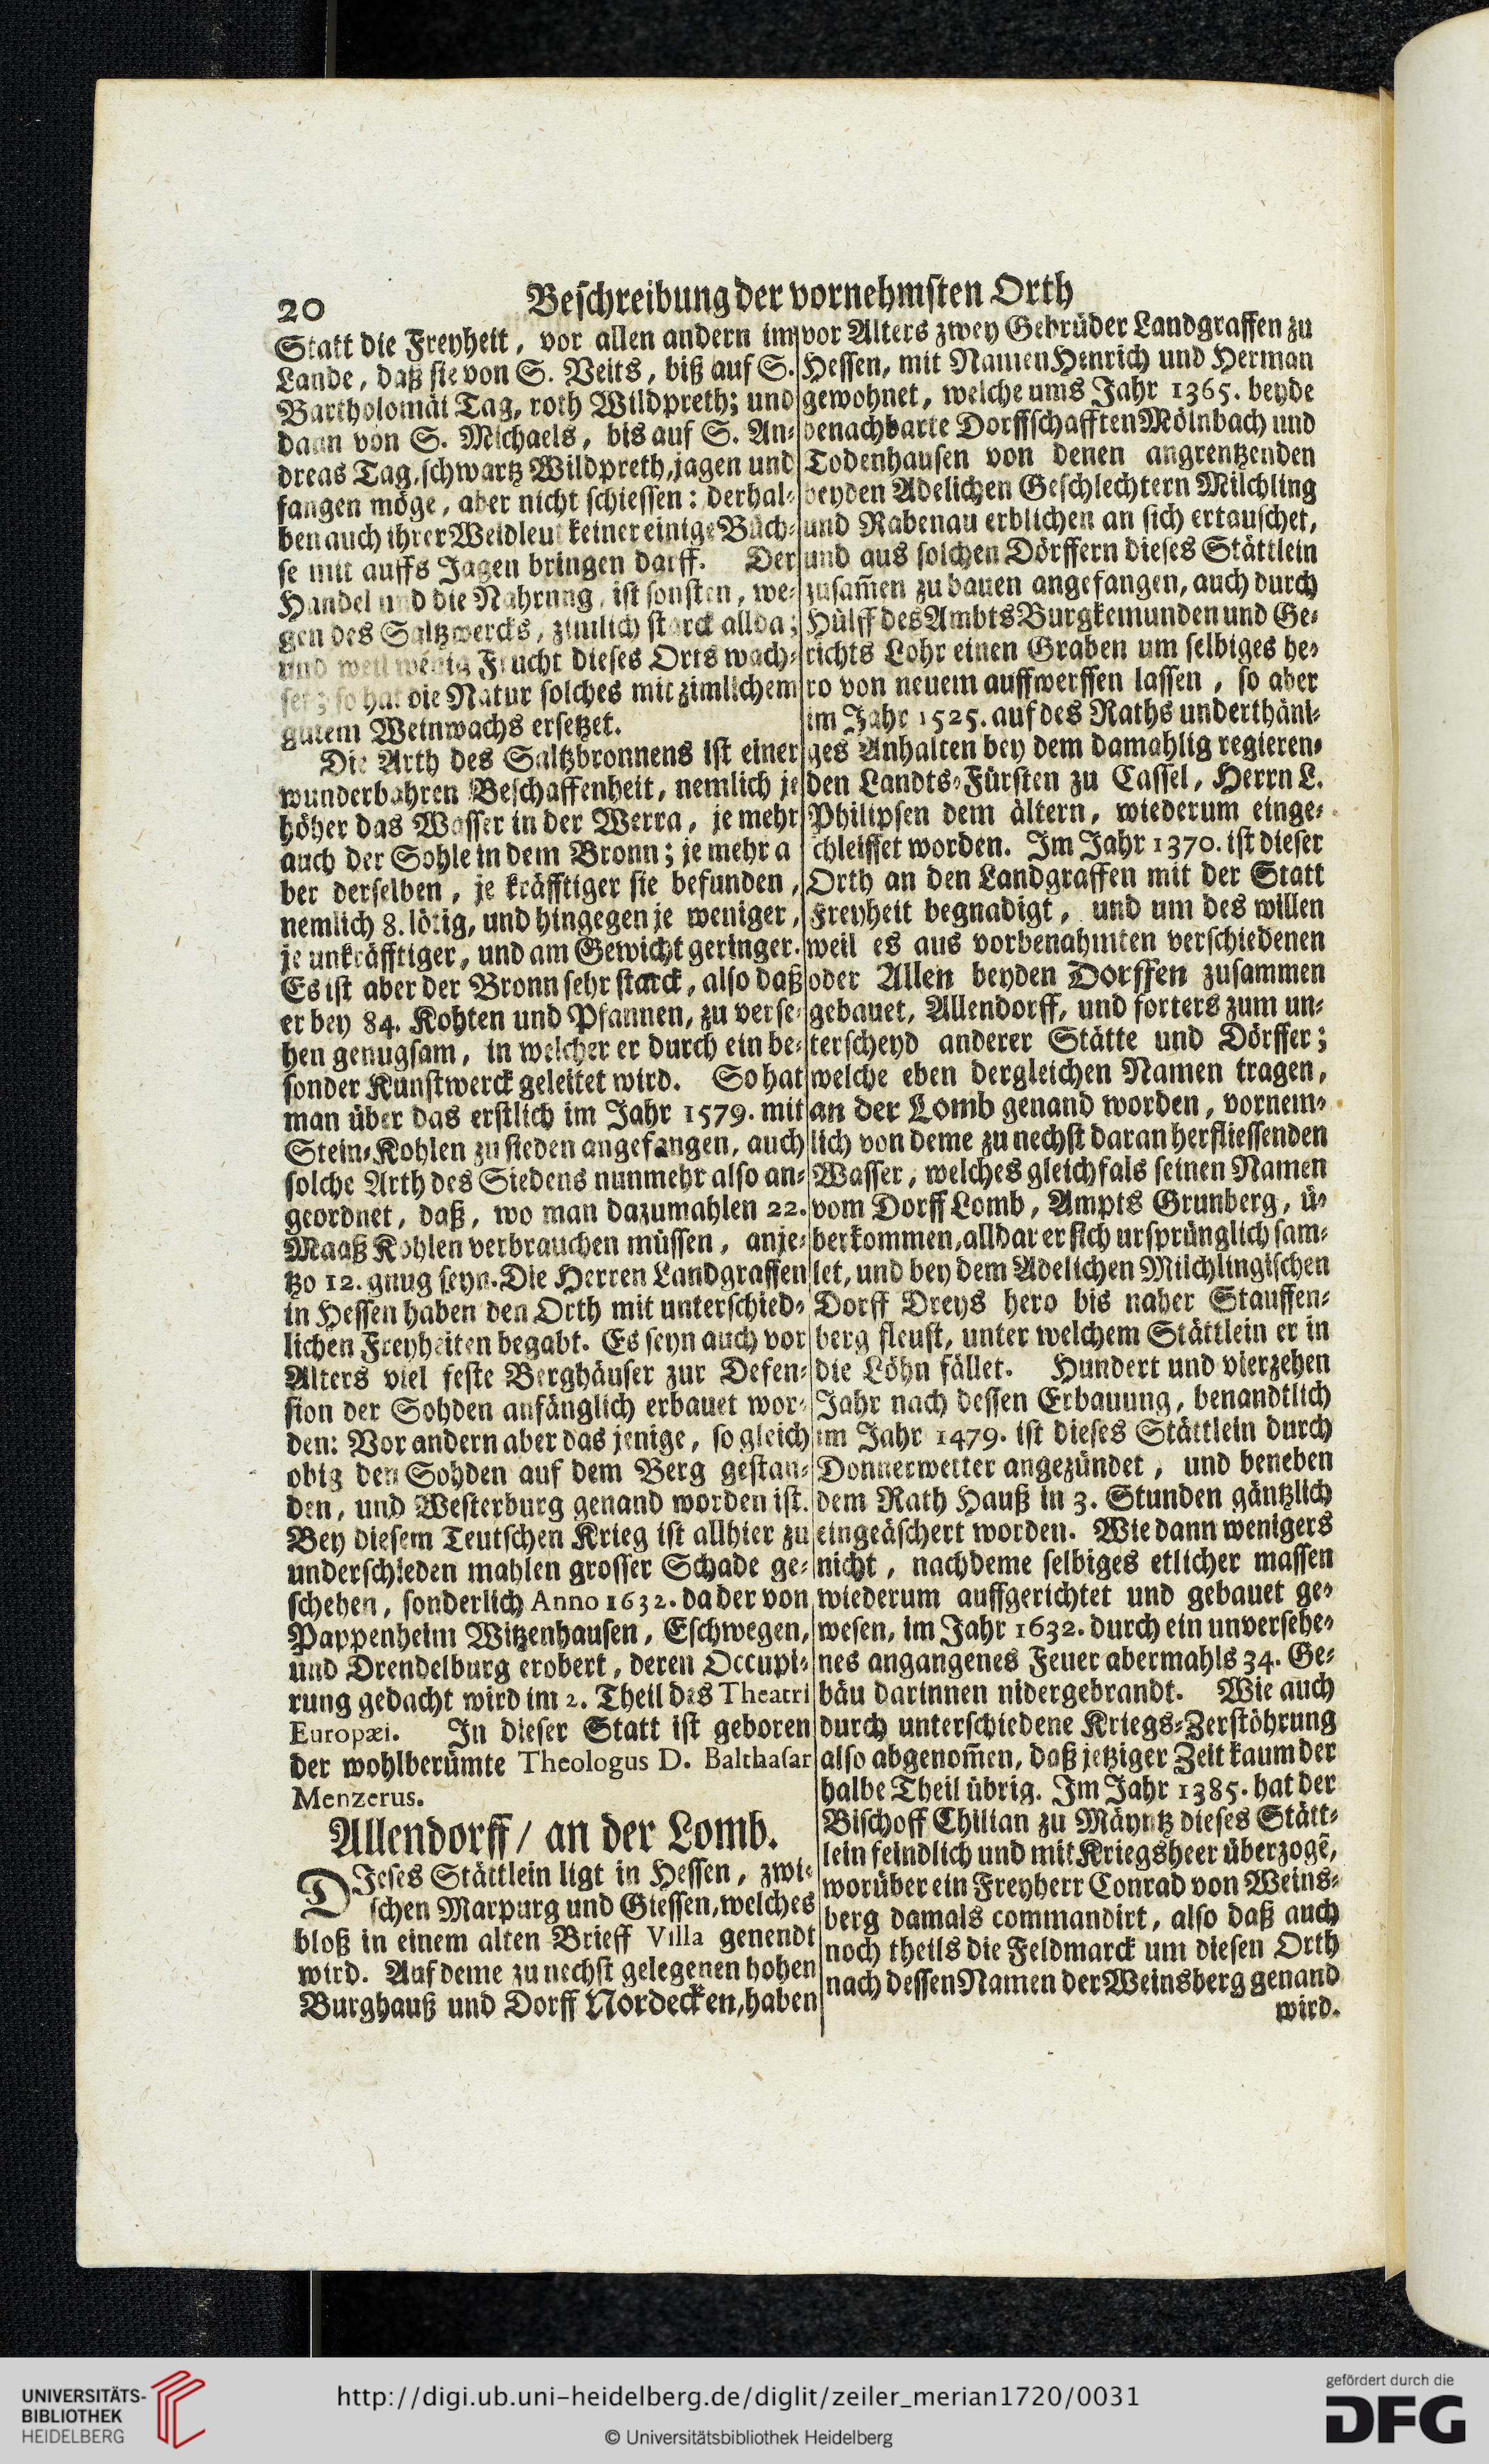 20
Beschreibung der vornehmsten Orth
Statt die Freyheit, vor allen andern im
Lande, daß sie von S. Veits, biß auf S.
Bartholomäi Tag, roth Wildpreth; und
dann von S. Michaels, bis auf S. An-
dreas Tag, schwartz Wildpreth, jagen und
fangen möge, aber nicht schiessen: derhal-
ben auch ihrer Weidleut keiner einige Büch-
se mit auffs Jagen bringen darff. Der
Handel und die Nahrung, ist sonsten, we-
gen des Saltzwercks, zimlich starck allda;
und weil wenig Frucht dieses Orts wach-
set; so hat die Natur solches mit zimlichem
gutem Weinwachs ersetzet.
Die Arth des Saltzbronnens ist einer
wunderbahren Beschaffenheit, nemlich je
höher das Wasser in der Werra, je mehr
auch der Sohle in dem Bronn; je mehr a
ber derselben, je kräfftiger sie befunden,
nemlich 8. lötig, und hingegen je weniger,
je unkräfftiger, und am Gewicht geringer.
Es ist aber der Bronn sehr starck, also daß
er bey 84. Kohten und Pfannen, zu verse-
hen genugsam, in welcher er durch ein be-
sonder Kunstwerck geleitet wird. So hat
man über das erstlich im Jahr 1579. mit
Stein-Kohlen zu sieden angefangen, auch
solche Arth des Siedens nunmehr also an-
geordnet, daß, wo man dazumahlen 22.
Maaß Kohlen verbrauchen müssen, anje-
tzo 12. gnug seyn. Die Herren Landgraffen
in Hessen haben den Orth mit unterschied-
lichen Freyheiten begabt. Es seyn auch vor
Alters viel feste Berghäuser zur Defen-
sion der Sohden anfänglich erbauet wor-
den: Vor andern aber das jenige, so gleich
obig den Sohden auf dem Berg gestan-
den, und Westerburg genand worden ist.
Bey diesem Teutschen Krieg ist allhier zu
underschieden mahlen grosser Schade ge-
schehen, sonderlich Anno 1632. da der von
Pappenheim Witzenhausen, Eschwegen,
und Drendelburg erobert, deren Occupi-
rung gedacht wird im 2. Theil des Theatri
Europæi. In dieser Statt ist geboren
der wohlberümte Theologus D. Balthasar
Menzerus.
Allendorff / an der Lomb.
DIeses Stättlein ligt in Hessen, zwi-
schen Marpurg und Giessen, welches
bloß in einem alten Brieff Villa genendt
wird. Auf deme zu nechst gelegenen hohen
Burghauß und Dorff Nordecken, haben
vor Alters zwey Gebrüder Landgraffen zu
Hessen, mit Namen Henrich und Herman
gewohnet, welche ums Jahr 1365. beyde
benachbarte Dorffschafften Mölnbach und
Todenhausen von denen angrentzenden
beyden Adelichen Geschlechtern Milchling
und Rabenau erblichen an sich ertauschet,
und aus solchen Dörffern dieses Stättlein
zusam̃en zu bauen angefangen, auch durch
Hülff des Ambts Burgkemunden und Ge-
richts Lohr einen Graben um selbiges he-
ro von neuem auffwerffen lassen, so aber
im Jahr 1525. auf des Raths underthäni-
ges Anhalten bey dem damahlig regieren-
den Landts-Fürsten zu Cassel, Herrn L.
Philipsen dem ältern, wiederum einge-
schleiffet worden. Im Jahr 1370. ist dieser
Orth an den Landgraffen mit der Statt
Freyheit begnadigt, und um des willen
weil es aus vorbenahmten verschiedenen
oder Allen beyden Dorffen zusammen
gebauet, Allendorff, und forters zum un-
terscheyd anderer Stätte und Dörffer;
welche eben dergleichen Namen tragen,
an der Lomb genand worden, vornem-
lich von deme zu nechst daran herfliessenden
Wasser, welches gleichfals seinen Namen
vom Dorff Lomb, Ampts Grunberg, ü-
berkommen, alldar er sich ursprünglich sam-
let, und bey dem Adelichen Milchlingischen
Dorff Dreys hero bis naher Stauffen-
berg fleust, unter welchem Stättlein er in
die Löhn fället. Hundert und vierzehen
Jahr nach dessen Erbauung, benandtlich
im Jahr 1479. ist dieses Stättlein durch
Donnerwetter angezündet, und beneben
dem Rath Hauß in 3. Stunden gäntzlich
eingeäschert worden. Wie dann wenigers
nicht, nachdeme selbiges etlicher massen
wiederum auffgerichtet und gebauet ge-
wesen, im Jahr 1632. durch ein unversehe-
nes angangenes Feuer abermahls 34. Ge-
bäu darinnen nidergebrandt. Wie auch
durch unterschiedene Kriegs-Zerstöhrung
also abgenom̃en, daß jetziger Zeit kaum der
halbe Theil übrig. Im Jahr 1385. hat der
Bischoff Chilian zu Mäyntz dieses Stätt-
lein feindlich und mit Kriegsheer überzogẽ,
worüber ein Freyherr Conrad von Weins-
berg damals commandirt, also daß auch
noch theils die Feldmarck um diesen Orth
nach dessen Namen der Weinsberg genand
wird.
UNIVERSITÄTS-
BIBLIOTHEK
HEIDELBERG
http://digi.ub.uni-heidelberg.de/diglit/zeiler_merian1720/0031
© Universitätsbibliothek Heidelberg
gefördert durch die
DFG